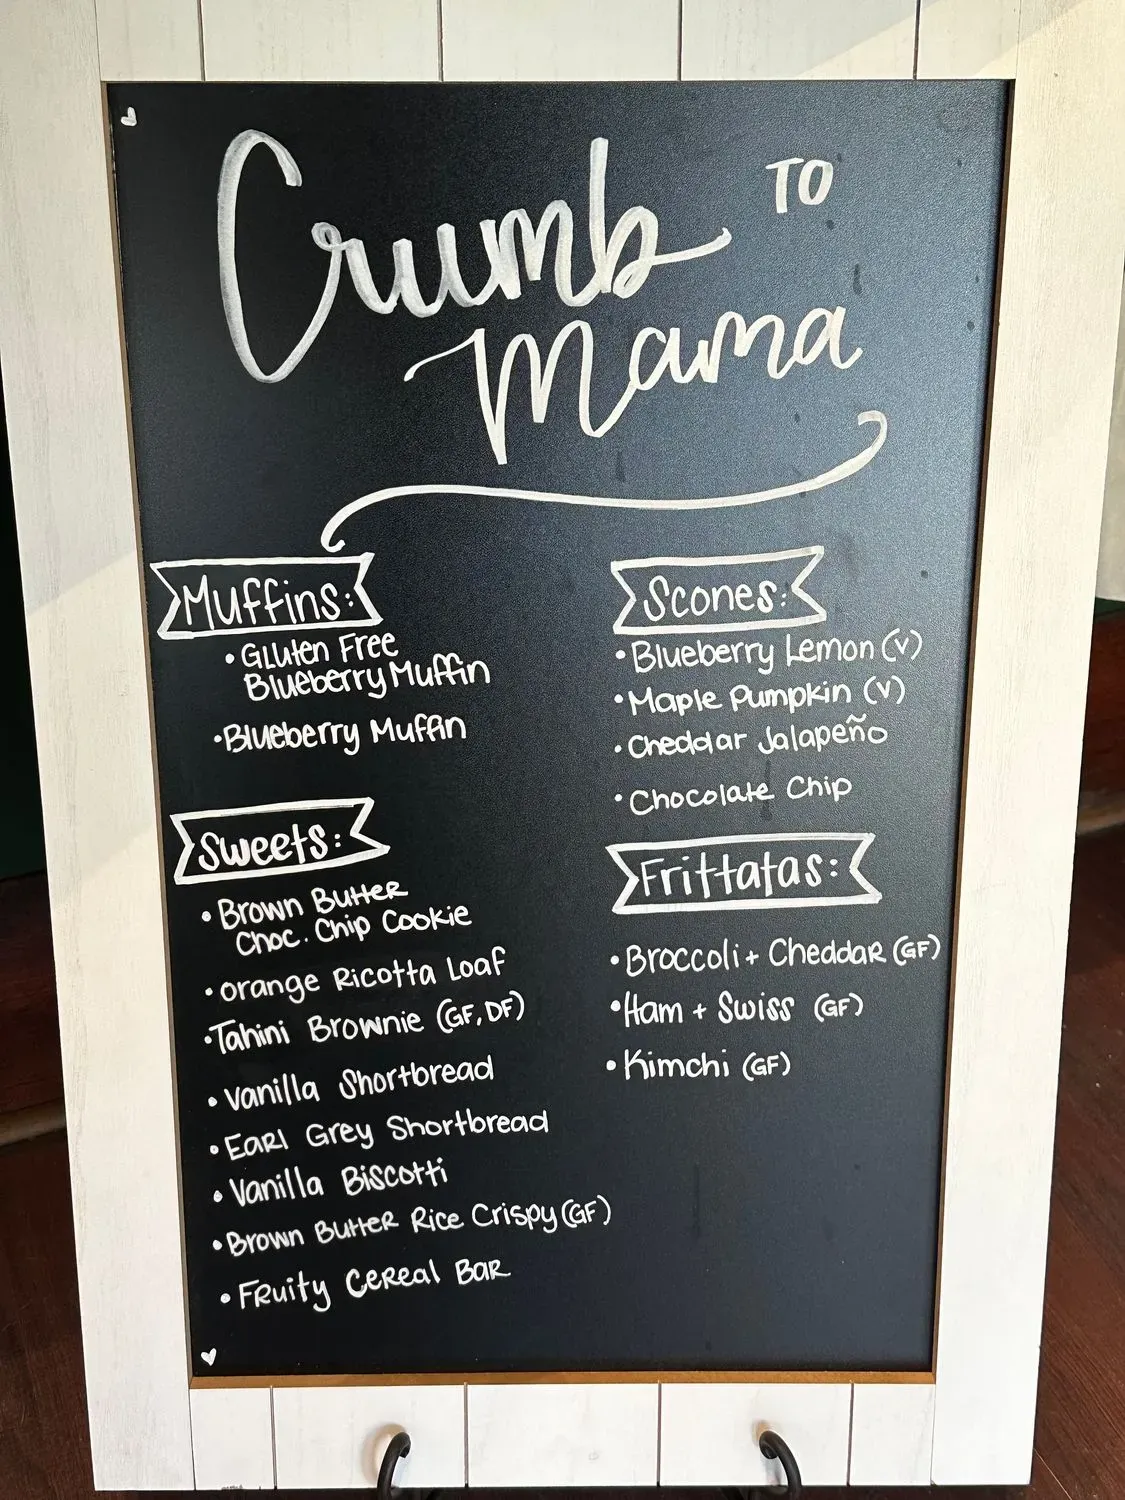 Crumb TO
Mama
Muffins:
• Gluten Free
Blueberry Muffin
• Blueberry Muffin
Sweets:
• Brown Butter
Choc. Chip Cookie
• Orange Ricotta Loaf
• Tahini Brownie (GF, DF)
• Vanilla Shortbread
• Earl Grey Shortbread
• Vanilla Biscotti
• Brown Butter Rice Crispy (GF)
• Fruity Cereal Bar
Scones:
• Blueberry Lemon (V)
• Maple Pumpkin (V)
• Cheddar Jalapeño
• Chocolate Chip
Frittatas:
• Broccoli + Cheddar (GF)
• Ham + Swiss (GF)
• Kimchi (GF)